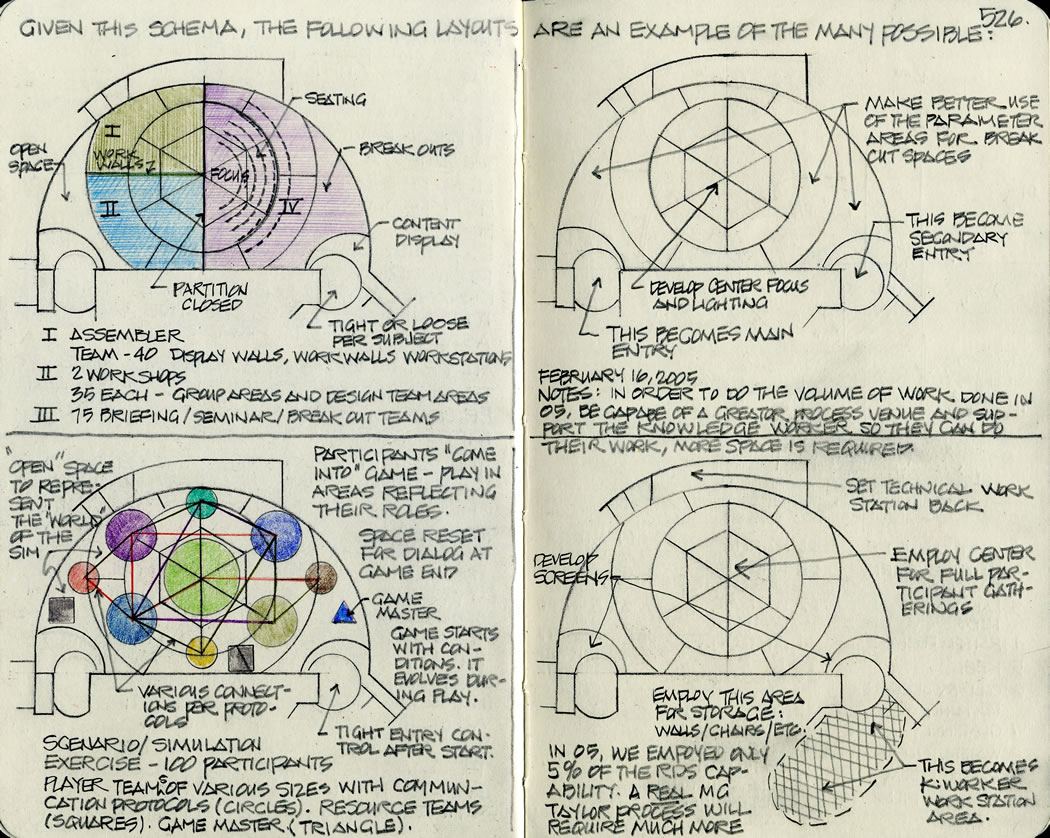 GIVEN THIS SCHEMA, THE FOLLOWING LAYOUTS ARE AN EXAMPLE OF THE MANY POSSIBLE:
526.
SEATING
I
WORK
WALLS
OPEN
SPACE
FOCUS
BREAK OUTS
II
IV
CONTENT
DISPLAY
PARTITION
CLOSED
TIGHT OR LOOSE
PER SUBJECT
I ASSEMBLER
TEAM - 40 DISPLAY WALLS, WORKWALLS WORKSTATIONS
II 2 WORKSHOPS
35 EACH - GROUP AREAS AND DESIGN TEAM AREAS
III 75 BRIEFING/SEMINAR/BREAK OUT TEAMS
MAKE BETTER USE
OF THE PARAMETER
AREAS FOR BREAK
OUT SPACES
THIS BECOME
SECONDARY
ENTRY
DEVELOP CENTER FOCUS
AND LIGHTING
THIS BECOMES MAIN
ENTRY
FEBRUARY 16, 2005
NOTES: IN ORDER TO DO THE VOLUME OF WORK DONE IN
05, BE CAPABE OF A GREATOR PROCESS VENUE AND SUP-
PORT THE KNOWLEDGE WORKER SO THEY CAN DO
THEIR WORK, MORE SPACE IS REQUIRED.
"OPEN" SPACE
TO REPRE-
SENT
THE "WORLD"
OF THE
SIM
PARTICIPANTS "COME
INTO" GAME - PLAY IN
AREAS REFLECTING
THEIR ROLES.
SPACE RESET
FOR DIALOG AT
GAME END
GAME
MASTER
GAME STARTS
WITH CON-
DITIONS. IT
EVOLVES DUR-
ING PLAY.
VARIOUS CONNECT-
IONS PER PROTO-
COLS
TIGHT ENTRY CON-
TROL AFTER START.
SCENARIO/SIMULATION
EXERCISE - 100 PARTICIPANTS
PLAYER TEAMS OF VARIOUS SIZES WITH COMMUN-
CATION PROTOCOLS (CIRCLES). RESOURCE TEAMS
(SQUARES). GAME MASTER (TRIANGLE).
SET TECHNICAL WORK
STATION BACK
DEVELOP
SCREENS
EMPLOY CENTER
FOR FULL PAR-
TICIPANT GATH-
ERINGS
EMPLOY THIS AREA
FOR STORAGE:
WALLS/CHAIRS/ETC.
IN 05, WE EMPOYED ONLY
5% OF THE RIDS CAP-
ABILITY. A REAL MG
TAYLOR PROCESS WILL
REQUIRE MUCH MORE
THIS BECOMES
K-WORKER
WORK STATION
AREA.